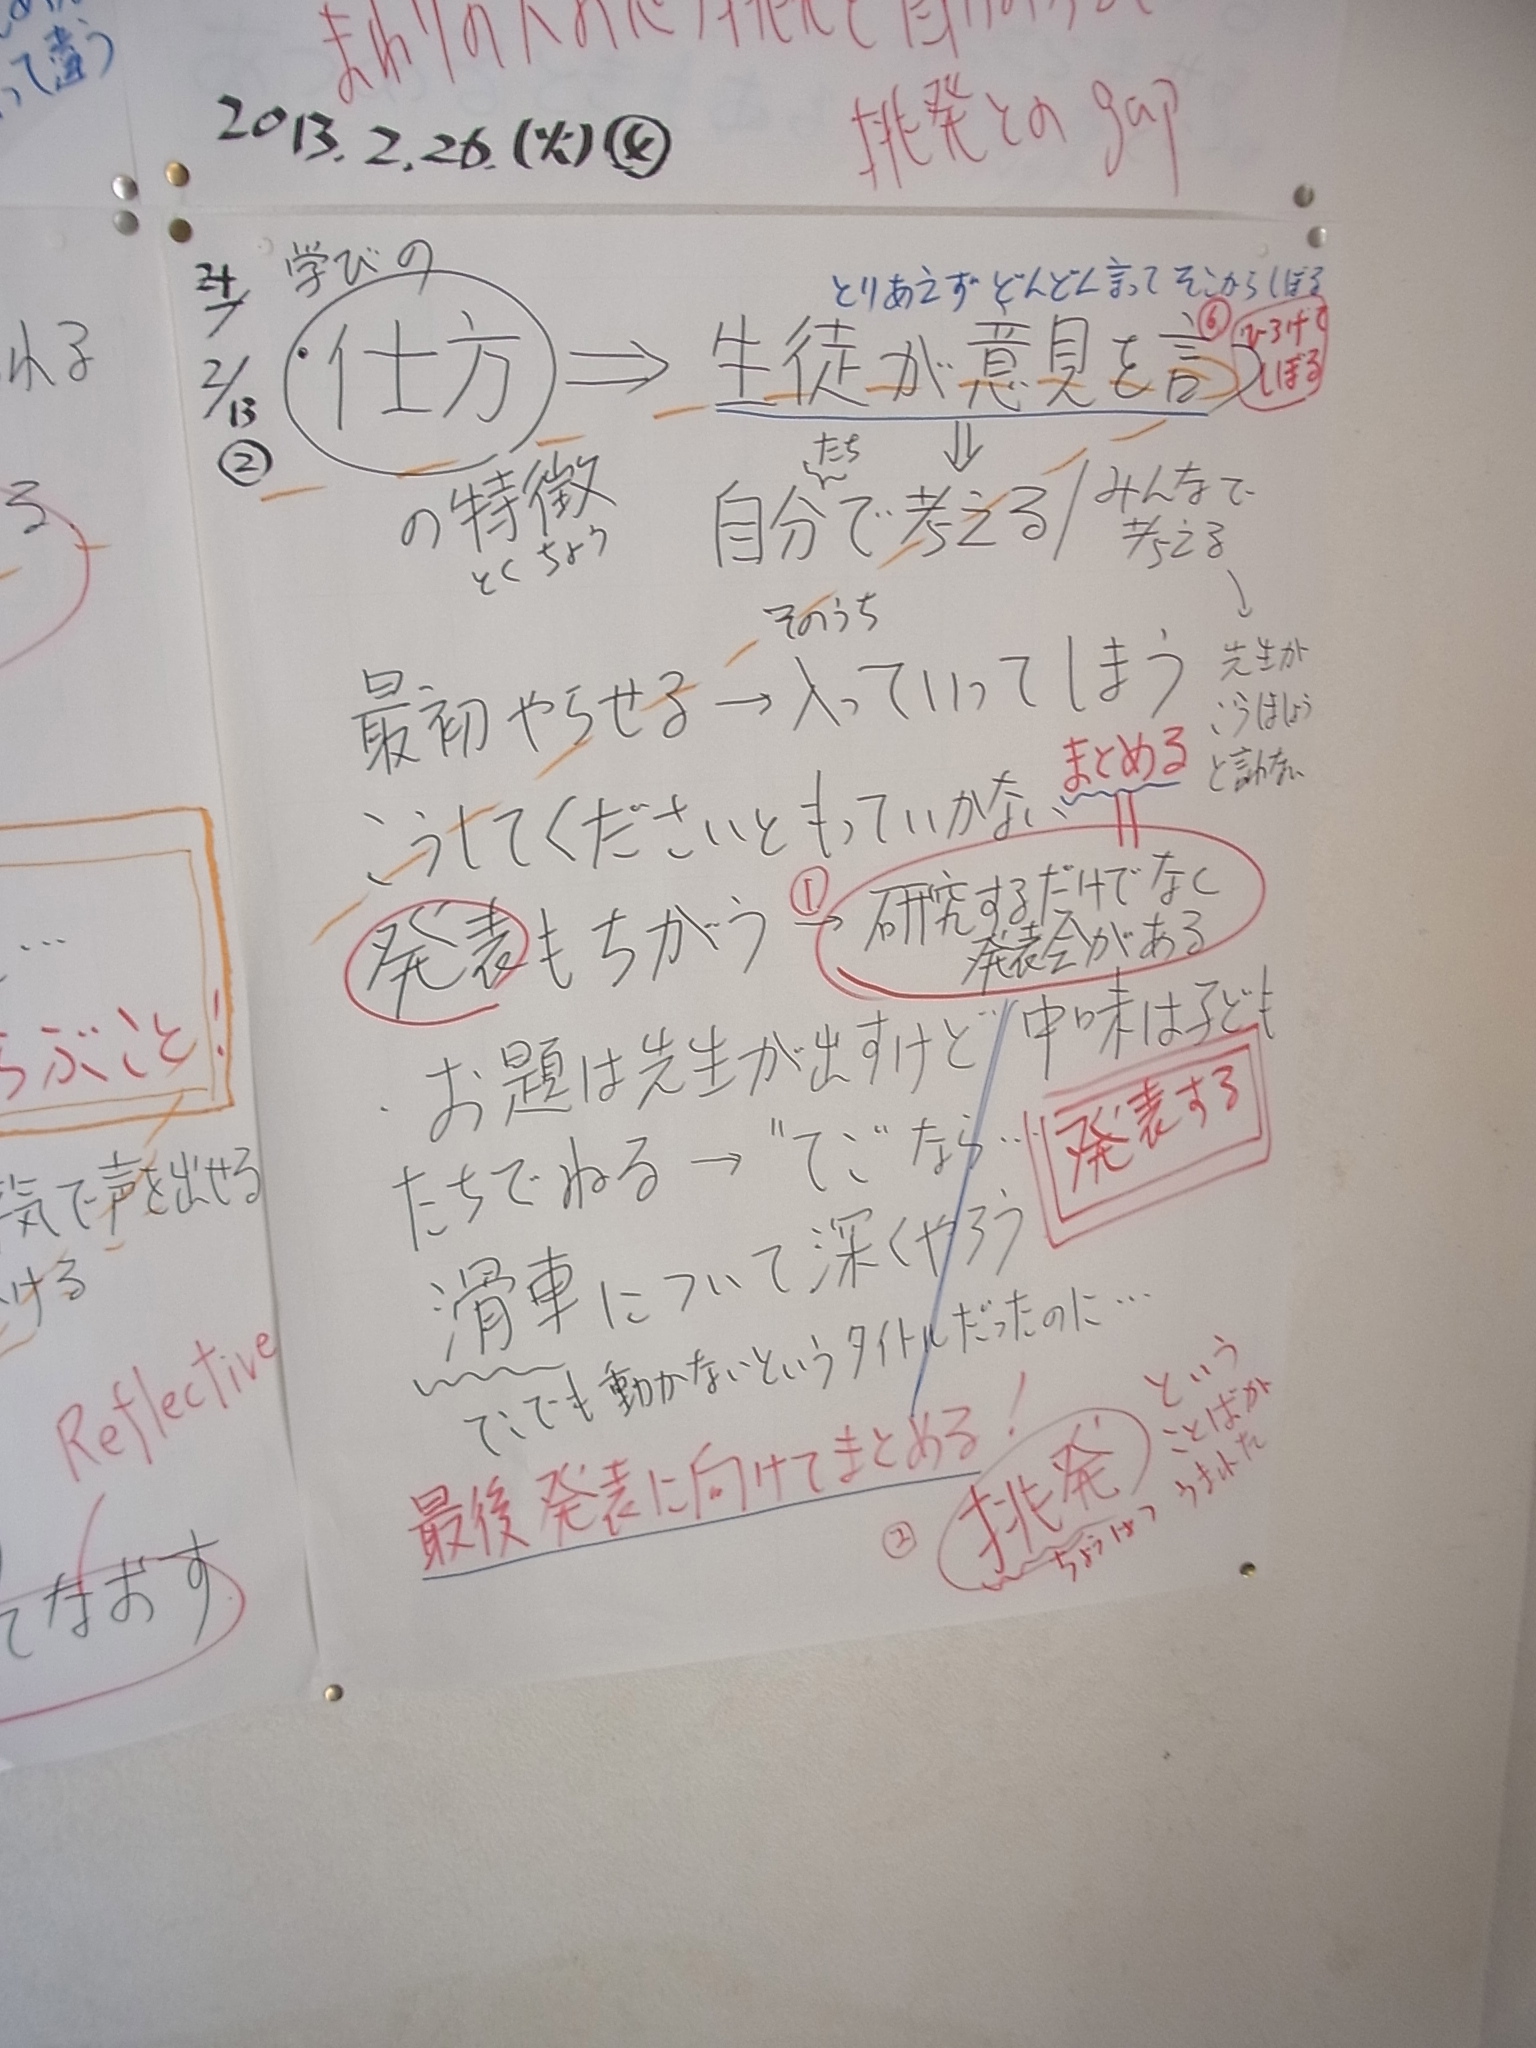 って違う
2013.2.26.(火)④
挑発との gap
れる
る
…
ぶこと!
気で声を出せる
ける
Reflective
てなおす
2/13
②
学びの
・仕方 ⇒ 生徒が意見を言う
とりあえずどんどん言ってそこからしぼる
⑥
ひろげて
しぼる
の特徴
とくちょう
⇓
たち
自分で考える/みんなで
考える
↓
先生が
こうはしょう
と言わない
そのうち
最初やらせる→入っていってしまう
こうしてくださいともっていかない
まとめる
発表もちがう
①
→研究するだけでなく
発表会がある
・お題は先生が出すけど中味は子ども
たちでねる→"てこ"なら…
発表する
滑車について深くやろう
てこでも動かないというタイトルだったのに…
最後発表に向けてまとめる!
②
挑発
ちょうはつ
という
ことばが
うまれた